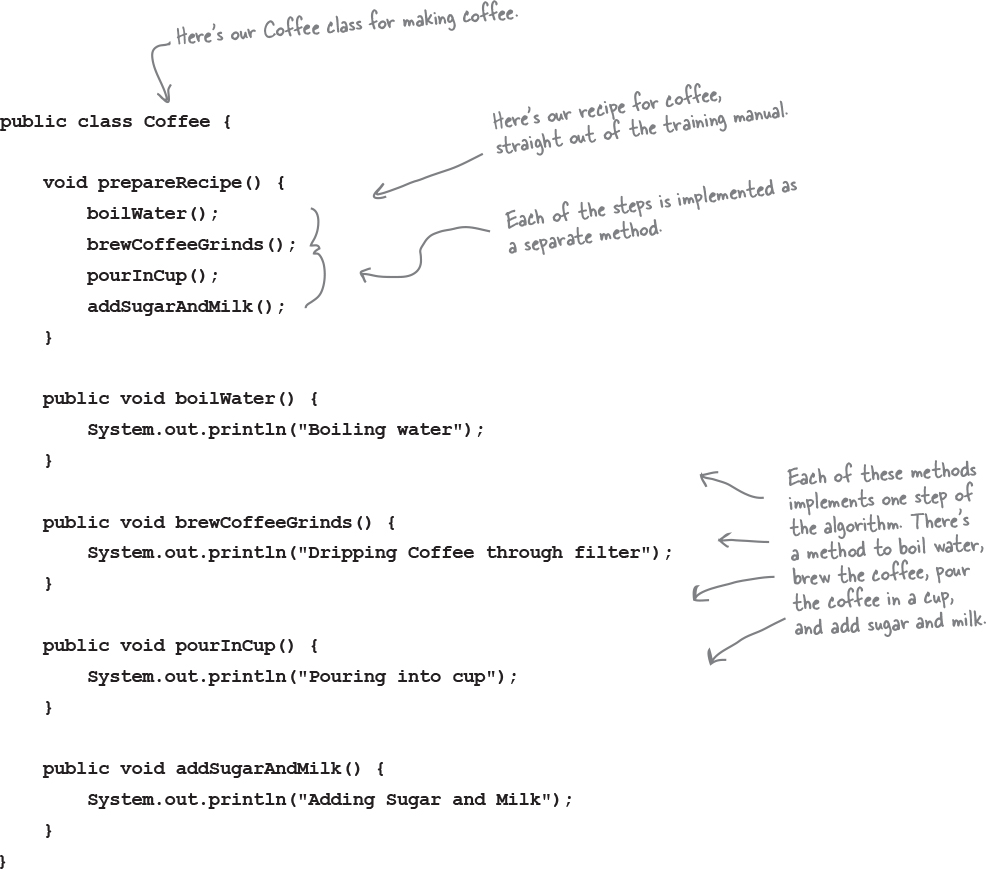 Here's our Coffee class for making coffee.
public class Coffee {
Here's our recipe for coffee,
straight out of the training manual.
void prepareRecipe() {
boilWater();
brewCoffeeGrinds();
pourInCup();
addSugarAndMilk();
}
Each of the steps is implemented as
a separate method.
public void boilWater() {
System.out.println("Boiling water");
}
public void brewCoffeeGrinds() {
System.out.println("Dripping Coffee through filter");
}
Each of these methods
implements one step of
the algorithm. There's
a method to boil water,
brew the coffee, pour
the coffee in a cup,
and add sugar and milk.
public void pourInCup() {
System.out.println("Pouring into cup");
}
public void addSugarAndMilk() {
System.out.println("Adding Sugar and Milk");
}
}